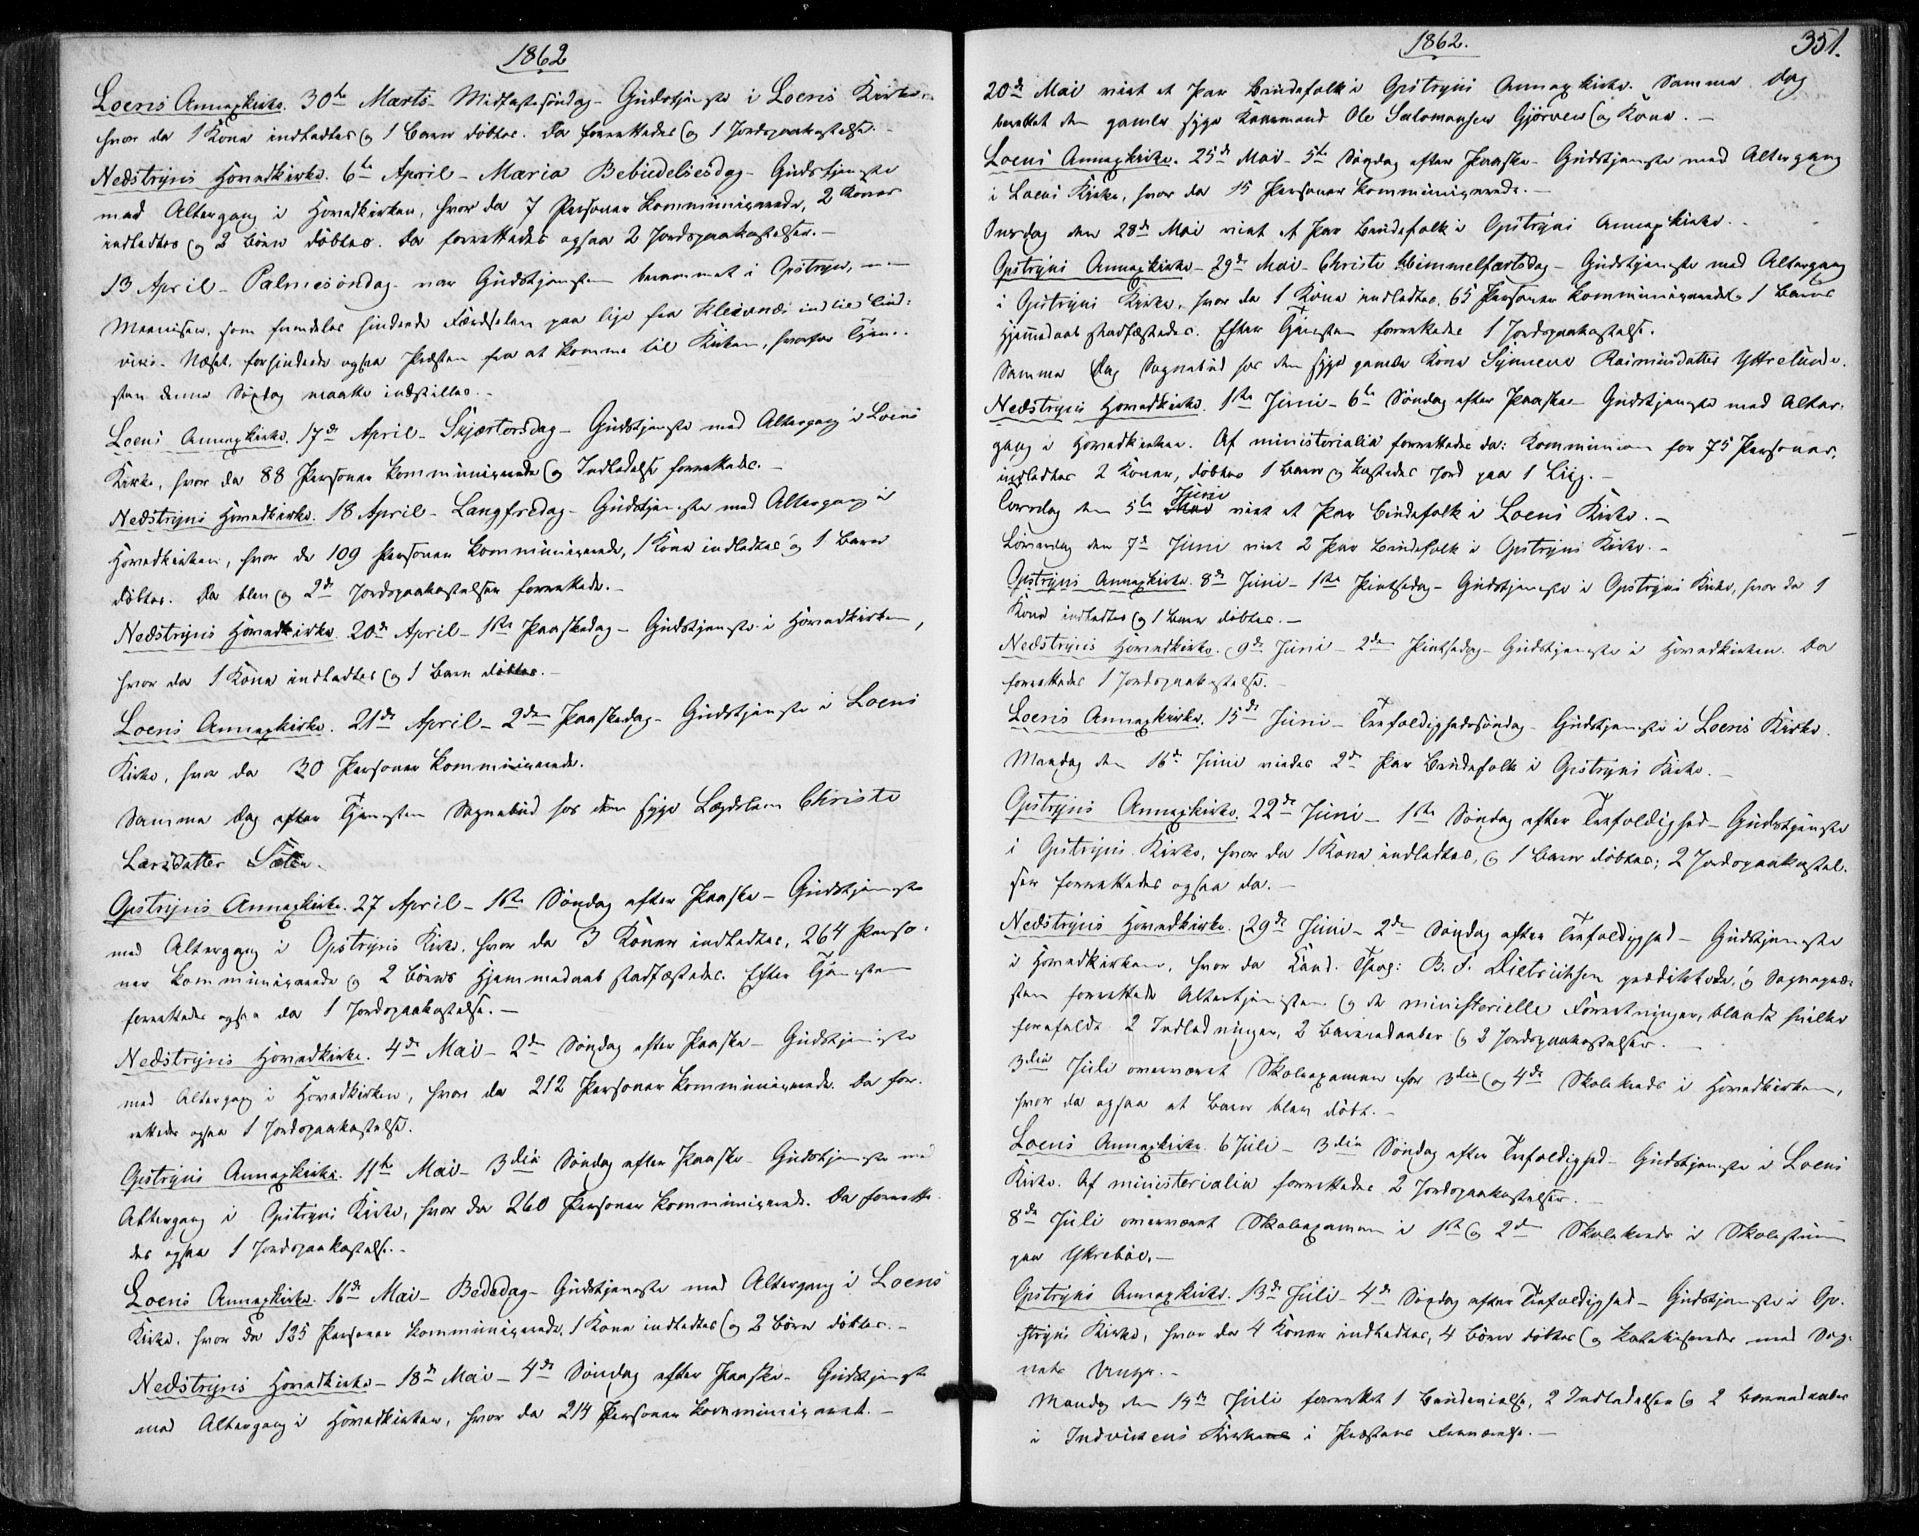 1862
Loens Annexkirke. 30te Marts - Midfastesöndag - Gudstjeneste i Loens Kirke,
hvor da 1 Kone indlededes og 1 Barn döbtes. Da forrettedes og 1 Jordspaakastelse. -
Nedstryns Hovedkirke. 6te April - Maria Bebudelsesdag - Gudstjeneste
med Altergang i Hovedkirken, hvor da 7 Personer kommunicerede, 2 Koner
indlededes og 2 Börn döbtes. Da forrettedes ogsaa 2 Jordspaakastelser. -
13 April - Palmesöndag - var Gudstjenesten berammet i Opstryn, -
som fremdeles hindrede Færdselen paa lige fra Kleivnæs ind
Næset, forhindrede ogsaa Præsten fra at komme til Kirken, hvorfor Tjene-
sten denne Söndag maatte indstilles. -
Loens Annexkirke. 17de April - Skjærtorsdag - Gudstjeneste med Altergang i Loens
Kirke, hvor da 88 Personer kommunicerede og 1 Indledelse forrettedes. -
Nedstryns Hovedkirke. 18 April - Langfredag - Gudstjeneste med Altergang i
Hovedkirken, hvor da 109 Personer kommunicerede, 1 Kone indlededes og 1 Barn
döbtes. Da blev og 2de Jordspaakastelser forrettede. -
Nedstryns Hovedkirke. 20de April - 1ste Paaskedag - Gudstjeneste i Hovedkirken,
hvor da 1 Kone indlededes og 1 Barn döbtes. -
Loens Annexkirke. 21de April - 2den Paaskedag - Gudstjeneste i Loens
Kirke, hvor da 30 Personer kommunicerede.
Samme Dag efter Tjenesten Sognebud hos den syge Lægdslem Christi
Larsdatter Sæten.
Opstryns Annexkirke. 27 April - 1ste Söndag efter Paaske - Gudstjeneste
med Altergang i Opstryns Kirke, hvor da 3 Koner indlededes, 264 Perso-
ner kommunicerede og 2 Börns Hjemmedaab stadfæstedes. Efter Tjenesten
forrettedes ogsaa da 1 Jordspaakastelse. -
Nedstryns Hovedkirke. 4de Mai - 2den Söndag efter Paaske - Gudstjeneste
med Altergang i Hovedkirken, hvor da 212 Personer kommunicerede. Da for-
rettedes ogsaa 1 Jordspaakastelse.
Opstryns Annexkirke. 11te Mai - 3die Söndag efter Paaske - Gudstjeneste med
Altergang i Opstryns Kirke, hvor da 260 Personer kommunicerede. Da forrette-
des ogsaa 1 Jordspaakastelse. -
Loens Annexkirke. 16de Mai - Bededag - Gudstjeneste med Altergang i Loens
Kirke, hvor da 135 Personer kommunicerede, 1 Kone indlededes og 2 Börn döbtes. -
Nedstryns Hovedkirke - 18de Mai - 4de Söndag efter Paaske - Gudstjeneste
med Altergang i Hovedkirken, hvor da 214 Personer kommunicerede. -
1862. 351.
20de Mai viet et Par Brudefolk i Opstryns Annexkirke. Samme Dag
berettet den gamle syge Kaarmand Ole Salomonsen Gjörven og Kone. -
Loens Annexkirke. 25de Mai - 5te Söndag efter Paaske - Gudstjeneste med Altergang
i Loens Kirke, hvor da 15 Personer kommunicerede. -
Onsdag den 28de Mai viet et Par Brudefolk i Opstryns Annexkirke. -
Opstryns Annexkirke - 29de Mai - Christi Himmelfartsdag - Gudstjeneste med Altergang
i Opstryns Kirke, hvor da 1 Kone indlededes, 65 Personer kommunicerede og 1 Barns
Hjemmedaab stadfæstedes. Efter Tjenesten forrettedes 1 Jordspaakastelse.
Samme Dag Sognebud hos den syge gamle Kone Synneve Rasmusdatter Ytrelunde.
Nedstryns Hovedkirke. 1ste Juni - 6te Söndag efter Paaske - Gudstjeneste med Alter-
gang i Hovedkirken. Af ministerialia forrettedes da: Kommunion for 75 Personer,
indlededes 2 Koner, döbtes 1 Barn og kastedes Jord paa 1 Liig. -
Torsdag den 5te Juni viet et Par Brudefolk i Loens Kirke. -
Löverdag den 7de Juni viet 2 Par Brudefolk i Opstryns Kirke. -
Opstryns Annexkirke. 8de Juni - 1ste Pintsedag - Gudstjeneste i Opstryns Kirke, hvor da 1
Kone indlededes og 1 Barn döbtes. -
Nedstryns Hovedkirke. 9de Juni - 2den Pintsedag - Gudstjeneste i Hovedkirken. Da
forrettedes 1 Jordspaakastelse. -
Loens Annexkirke. 15de Juni - Trefoldighedssöndag - Gudstjeneste i Loens Kirke.
Mandag den 16de Juni viedes 2de Par Brudefolk i Opstryns Kirke. -
Opstryns Annexkirke. 22de Juni - 1ste Söndag efter Trefoldighed - Gudstjeneste
i Opstryns Kirke, hvor da 1 Kone indlededes, og 1 Barn döbtes; 2 Jordspaakastel-
ser forrettedes ogsaa da. -
Nedstryns Hovedkirke. 29de Juni - 2den Söndag efter Trefoldighed - Gudstjeneste
i Hovedkirken, hvor da Cand. Theog: B. S. Dietrichsen prædikede, og Sognepræ-
sten forrettede Altertjenesten og de ministerielle Forretninger, blandt hvilke
forefaldt 2 Indledninger, 2 Barnedaaber og 3 Jordspaakastelser. -
3die Juli overværet Skoleexamen for 3die og 4de Skolekreds i Hovedkirken,
hvor da ogsaa et Barn blev döbt. -
Loens Annexkirke. 6 Juli - 3die Söndag efter Trefoldighed - Gudstjeneste i Loens
Kirke. Af ministerialia forrettedes 2 Jordspaakastelser. -
8de Juli overværet Skoleexamen i 1ste og 2den Skolekreds i Skolestuen
paa Ytreböe. -
Opstryns Annexkirke. 13de Juli - 4de Söndag efter Trefoldighed - Gudstjeneste i Op-
stryns Kirke, hvor da 4 Koner indlededes, 4 Börn döbtes og katekiseredes med Sog-
nets Unge. -
Mandag den 14de Juli forrettet 1 Brudevielse, 2 Indledelser og 2 Barnedaaber
i Indvikens Kirke i Præstens Fraværelse. -